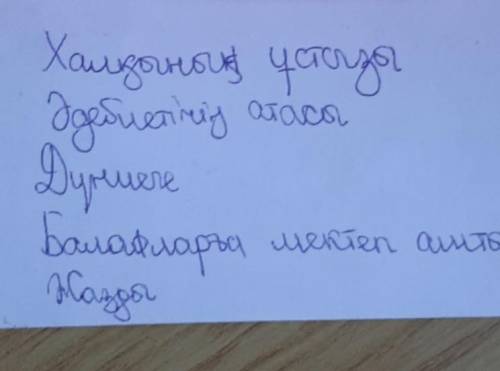 Халқының ұстазы
Әдебиетінің атасы
Дүниеге
Балаларға мектеп ашты
Жазды